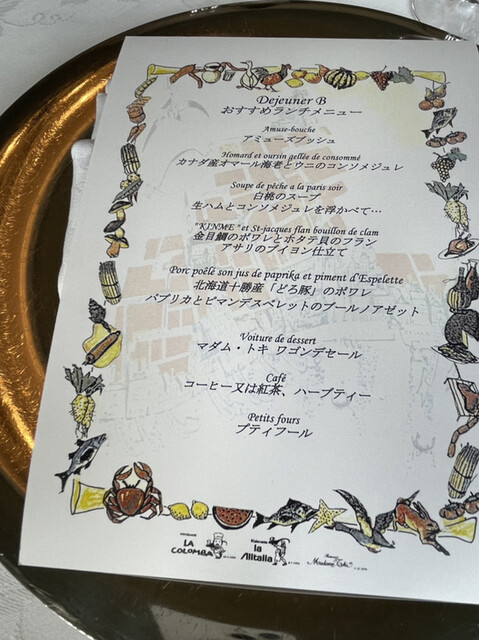 Dejeuner B
おすすめランチメニュー
Amuse-bouche
アミューズブッシュ
Homard et oursin gellée de consommé
カナダ産オマール海老とウニのコンソメジュレ
Soupe de pêche a la paris soir
白桃のスープ
生ハムとコンソメジュレを浮かべて…
"KINME" et St-jacques flan bouillon de clam
金目鯛のポワレとホタテ貝のフラン
アサリのブイヨン仕立て
Porc poêlé son jus de paprika et piment d'Espelette
北海道十勝産「どろ豚」のポワレ
パプリカとピマンデスペレットのブールノアゼット
Voiture de dessert
マダム・トキ ワゴンデセール
Café
コーヒー又は紅茶、ハーブティー
Petits fours
プティフール
LA COLOMBA
la Alitalia
Madame Toki